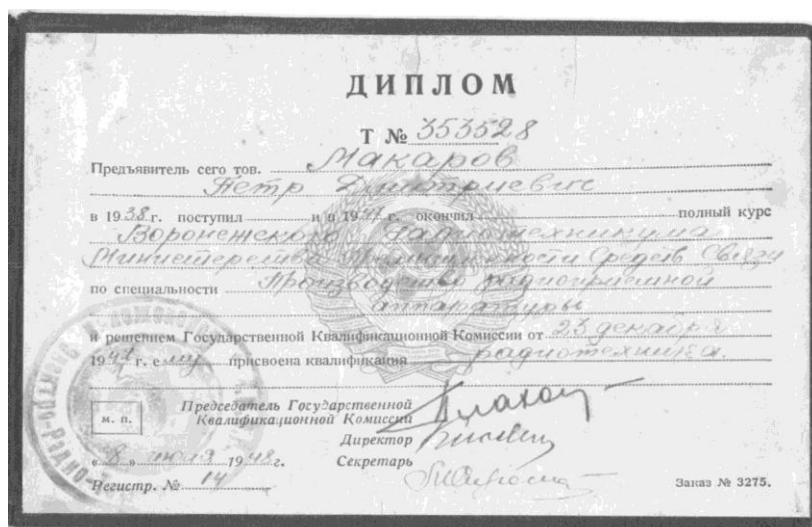 ДИПЛОМ
Т № 353528
Предъявитель сего тов. Макаров
Петр Дмитриевич
в 1938 г. поступил и в 19 г. окончил полный курс
Воронежского Радиотехникума
Министерства Промышленности Средств Связи
по специальности Производство радиоприемной
аппаратуры
и решением Государственной Квалификационной Комиссии от 23 декабря
194 г. ему присвоена квалификация радиотехника.
Председатель Государственной
м. п. Квалификационной Комиссии
Директор
« 8 » июля 1948 г. Секретарь
Регистр. № 14 Заказ № 3275.